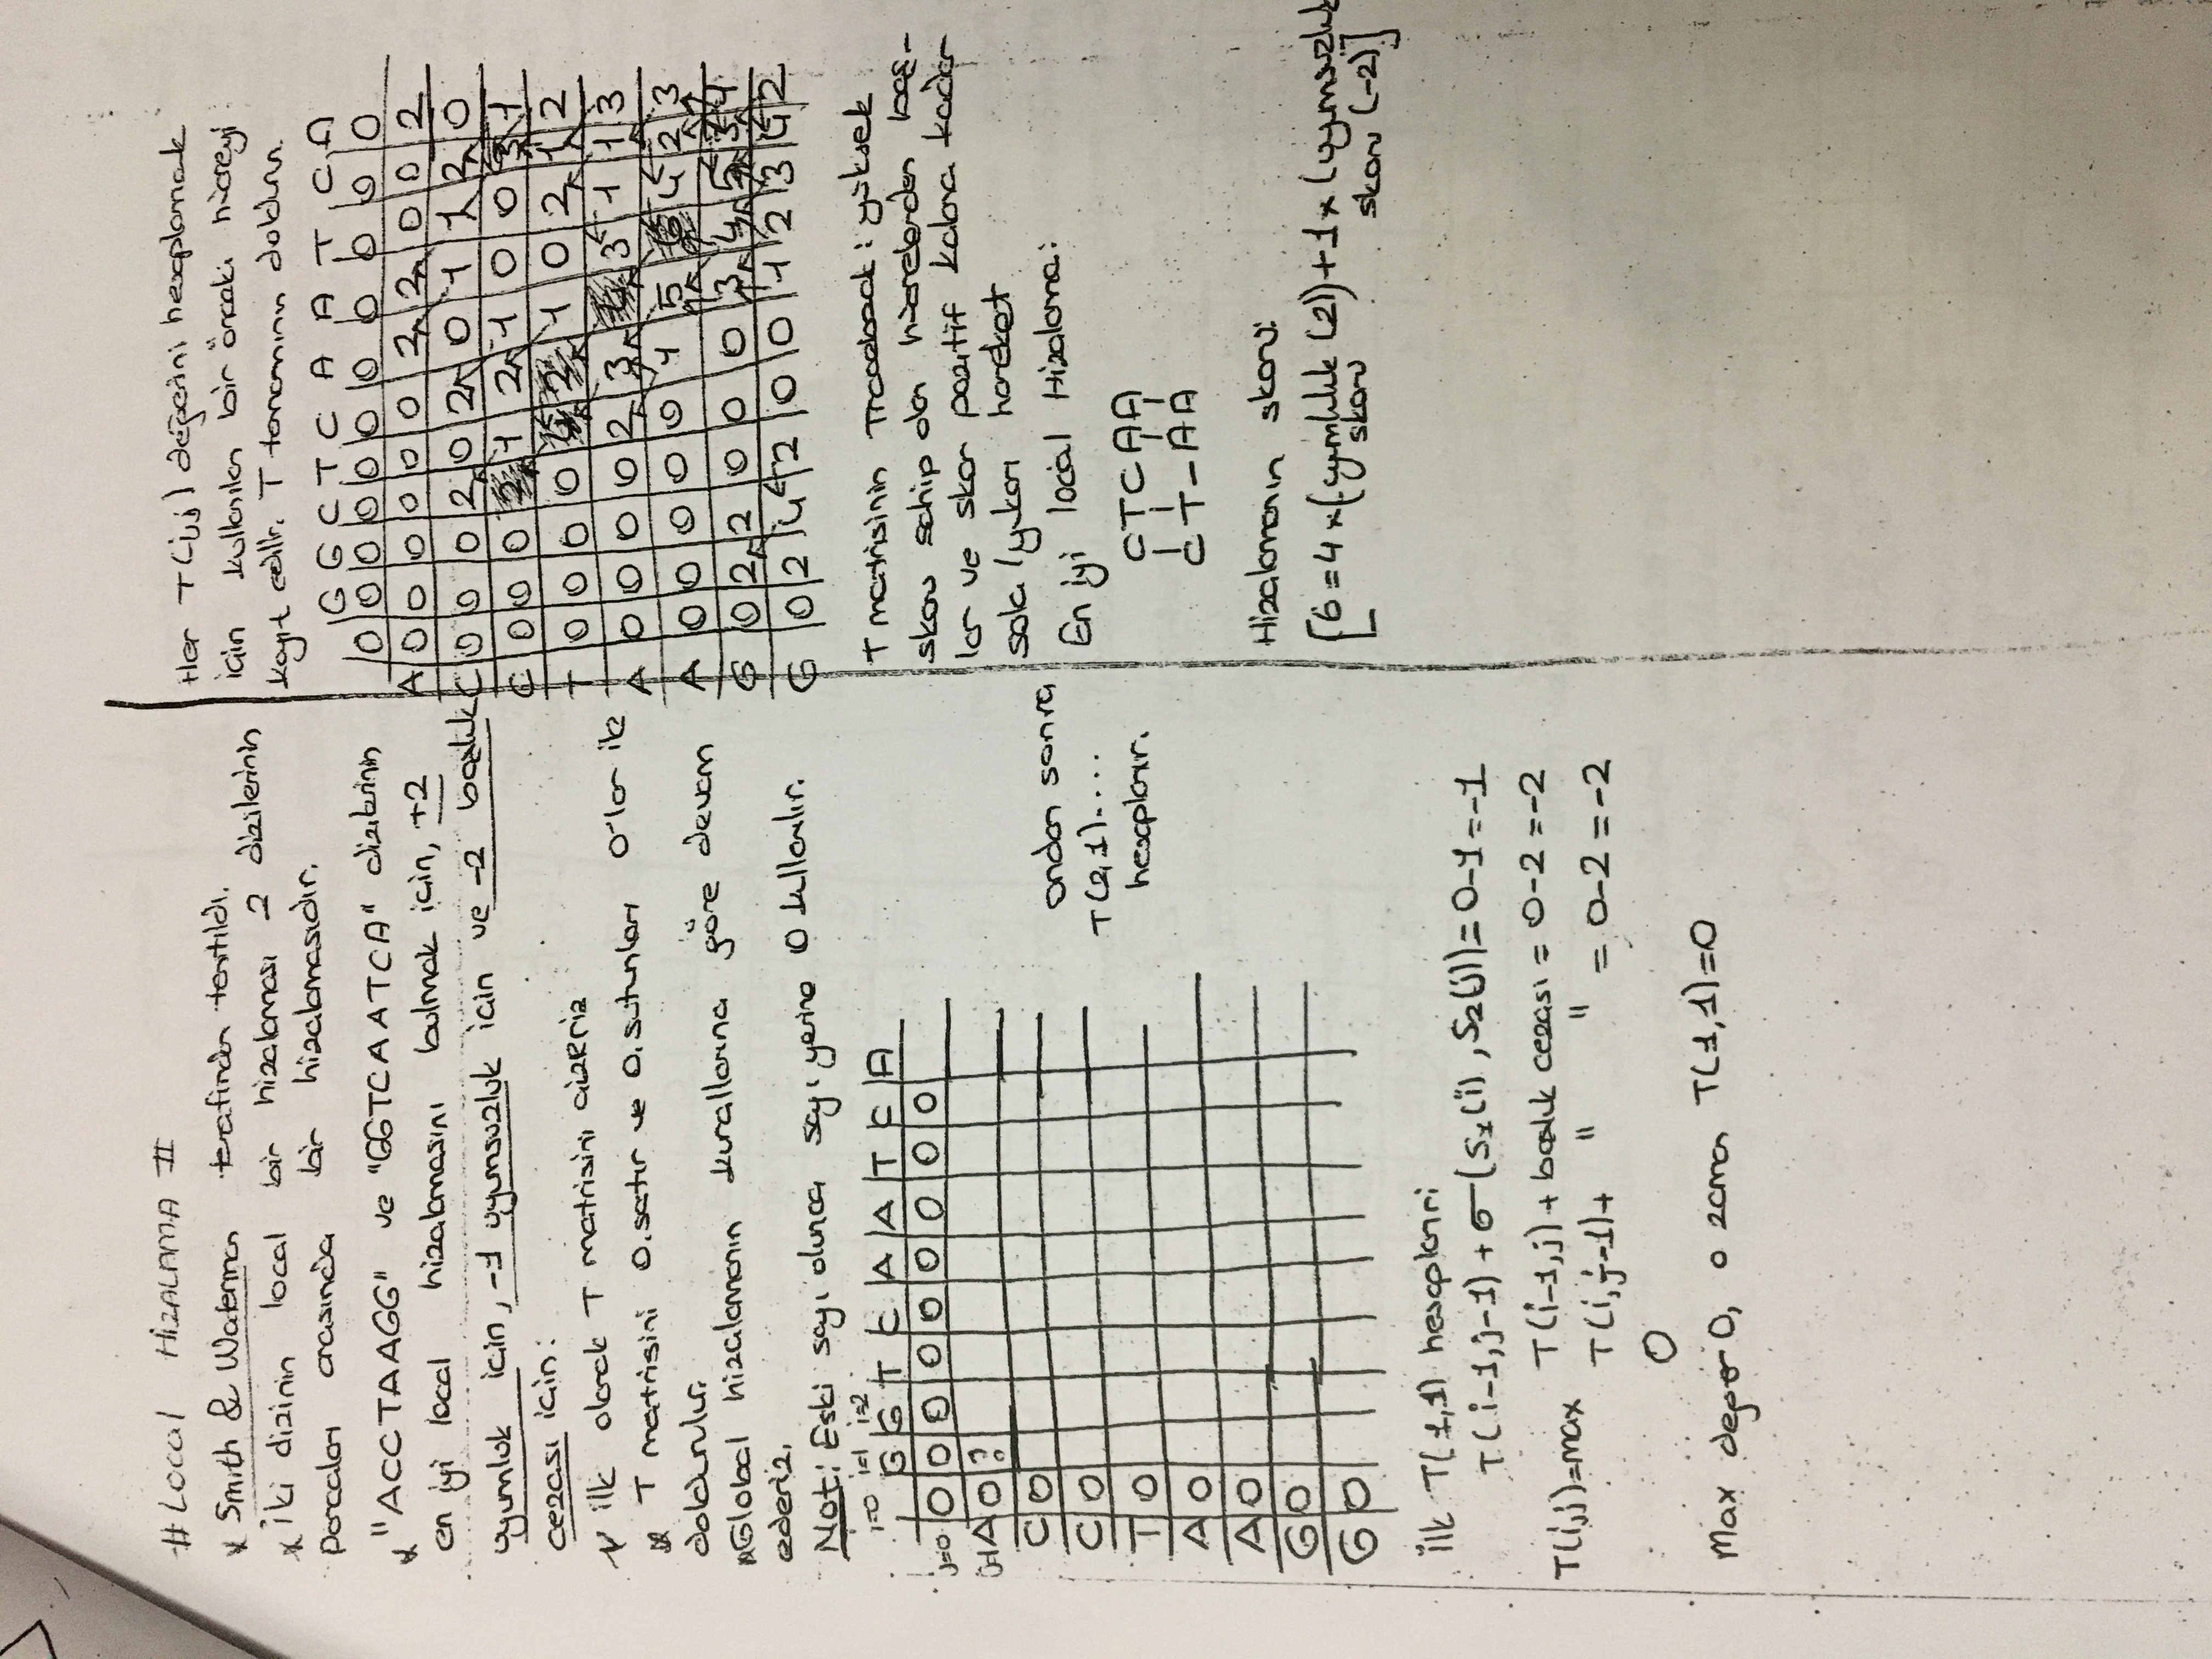 # Local HİZALAMA II
* Smith & Waterman tarafından tanıtıldı.
* İki dizinin local bir hizalaması 2 dizilerinin
parcaları arasında bir hizalamasıdır.
* "ACCTAAGG" ve "GGTCAATCA" dizilerinin
en iyi local hizalamasını bulmak için, +2
uyumluk için, -1 uyumsuzluk için ve -2 boşluk
cezası için:
* ilk olarak T matrisini çizeriz
* T matrisini 0.satır ve 0.sutunları 0'lar ile
doldurulur.
* Global hizalamanın kurallarına göre devam
ederiz.
Not: Eski sayı olunca sayı yerine 0 kullanılır.
i=0 i=1 i=2
G G T C A A T C A
j=0 0 0 0 0 0 0 0 0 0
j=1 A 0 ?
C 0
C 0
T 0
A 0
A 0
G 0
G 0
ondan sonra
T(2,1)....
hesaplanır.
ilk T(1,1) hesaplanır:
T(i-1,j-1) + σ(S1(i), S2(j)) = 0-1=-1
T(i,j)=max T(i-1,j) + boşluk cezası = 0-2=-2
T(i,j-1)+ " " = 0-2=-2
0
Max değer 0, o zaman T(1,1)=0
Her T(i,j) değerini hesaplamak
için kullanılan bir önceki hücreyi
kayıt edilir. T tamamını doldurun.
G G C T C A A T C A
0 0 0 0 0 0 0 0 0 0 0
A 0 0 0 0 0 0 2 2 0 0 2
C 0 0 0 2 0 2 0 1 1 2 0
C 0 0 0 2 1 2 1 0 0 3 1
T 0 0 0 0 4 2 1 0 2 1 2
A 0 0 0 0 2 3 4 3 1 1 3
A 0 0 0 0 0 1 5 6 4 2 3
G 0 2 2 0 0 0 3 4 5 3 4
G 0 2 4 2 0 0 1 2 3 4 2
T matrisinin Traceback: yüksek
skoru sahip olan hücrelerden baş-
lar ve skor pozitif kalana kadar
sola/yukarı hareket
En iyi local Hizalama:
CTCAA
| | | |
CT-AA
Hizalamanın skoru:
[6=4x(uyumluluk (2))+1x(uyumsuzluk
skoru skoru (-2)]